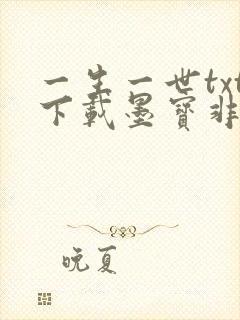 一生一世txt
下载墨宝非
晚夏